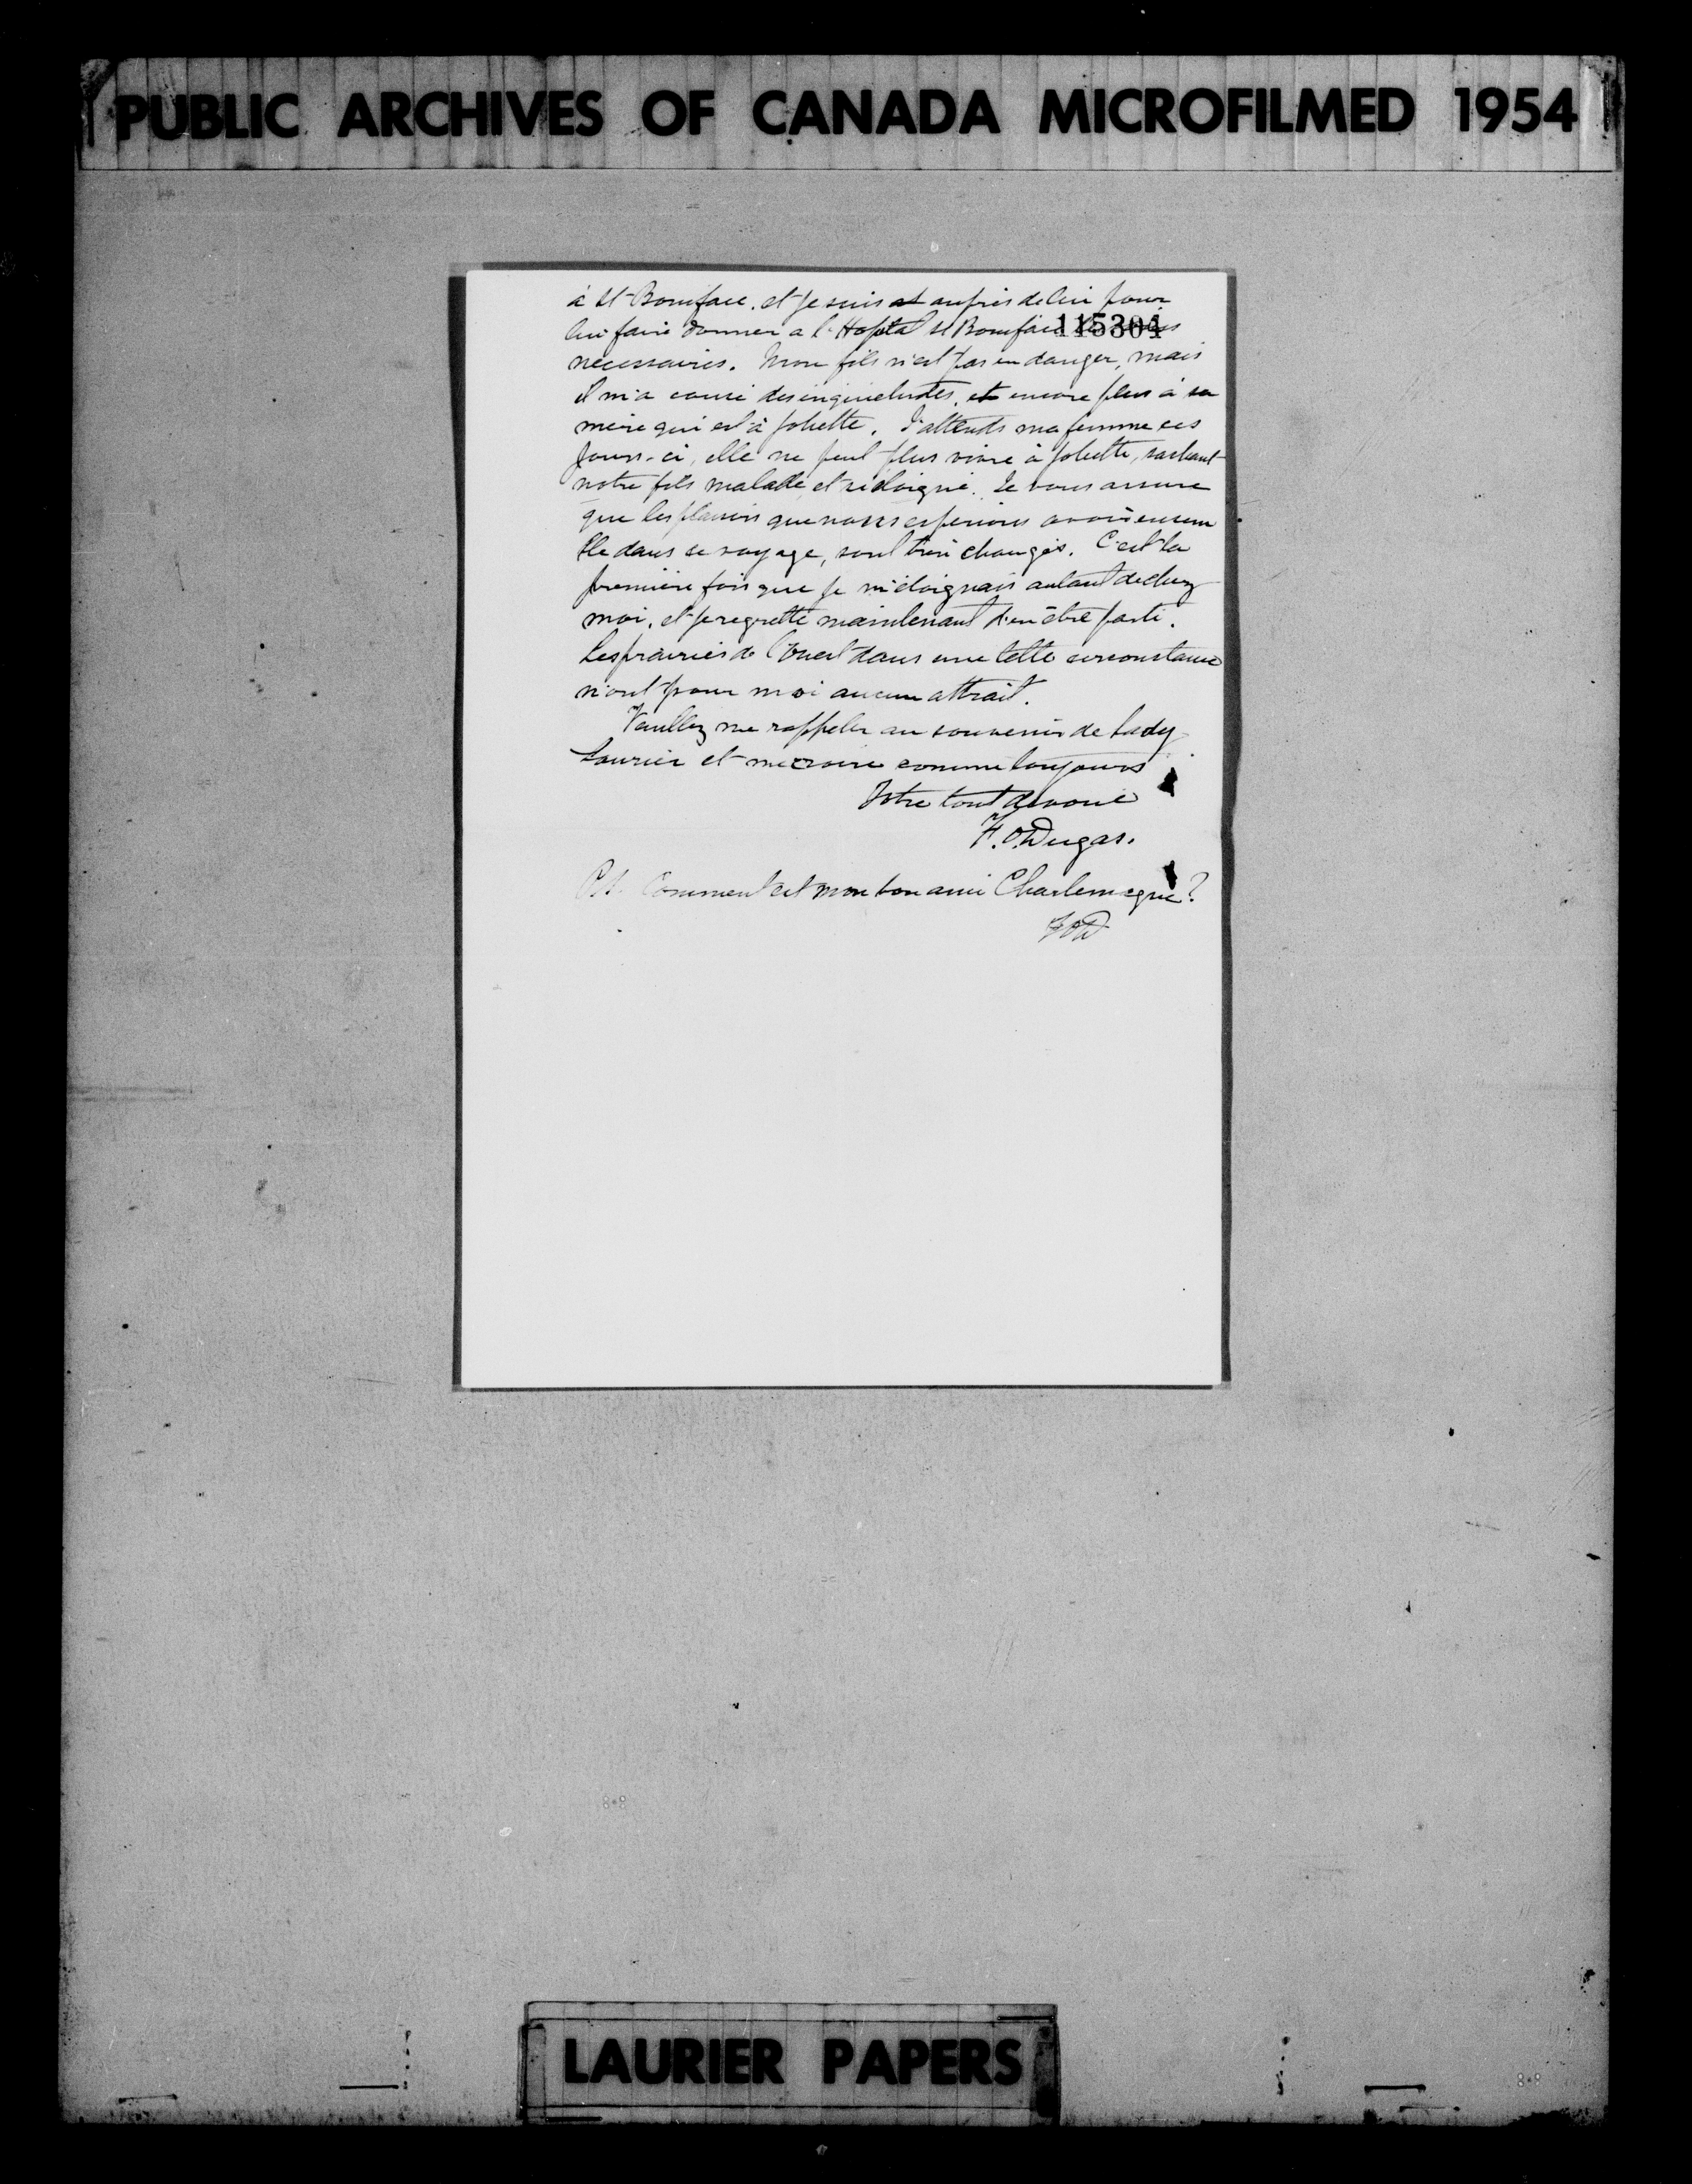 PUBLIC ARCHIVES OF CANADA MICROFILMED 1954
à St-Boniface. et je suis auprès de lui pour
lui faire donner a l'Hopital St Boniface les soins
115304
nécessaires. Mon fils n'est pas en danger, mais
il m'a causé des inquietudes, et encore plus à sa
mère qui est à Joliette. J'attends ma femme ces
jours-ci, elle ne peut plus vivre à Joliette, sachant
notre fils malade et si éloigné. Je vous assure
que les plaisirs que nous esperions avoir ensem
ble dans ce voyage, sont bien changés. C'est la
première fois que je m'éloignais autant de chez
moi, et je regrette maintenant d'en être parti.
Les prairies de l'Ouest dans une telle circonstance
n'ont pour moi aucun attrait.
Veuillez me rappeler au souvenir de Lady
Laurier et me croire comme toujours
Votre tout devoué
F. O. Dugas.
P.S. Comment est mon bon ami Charlemagne?
FOD
LAURIER PAPERS